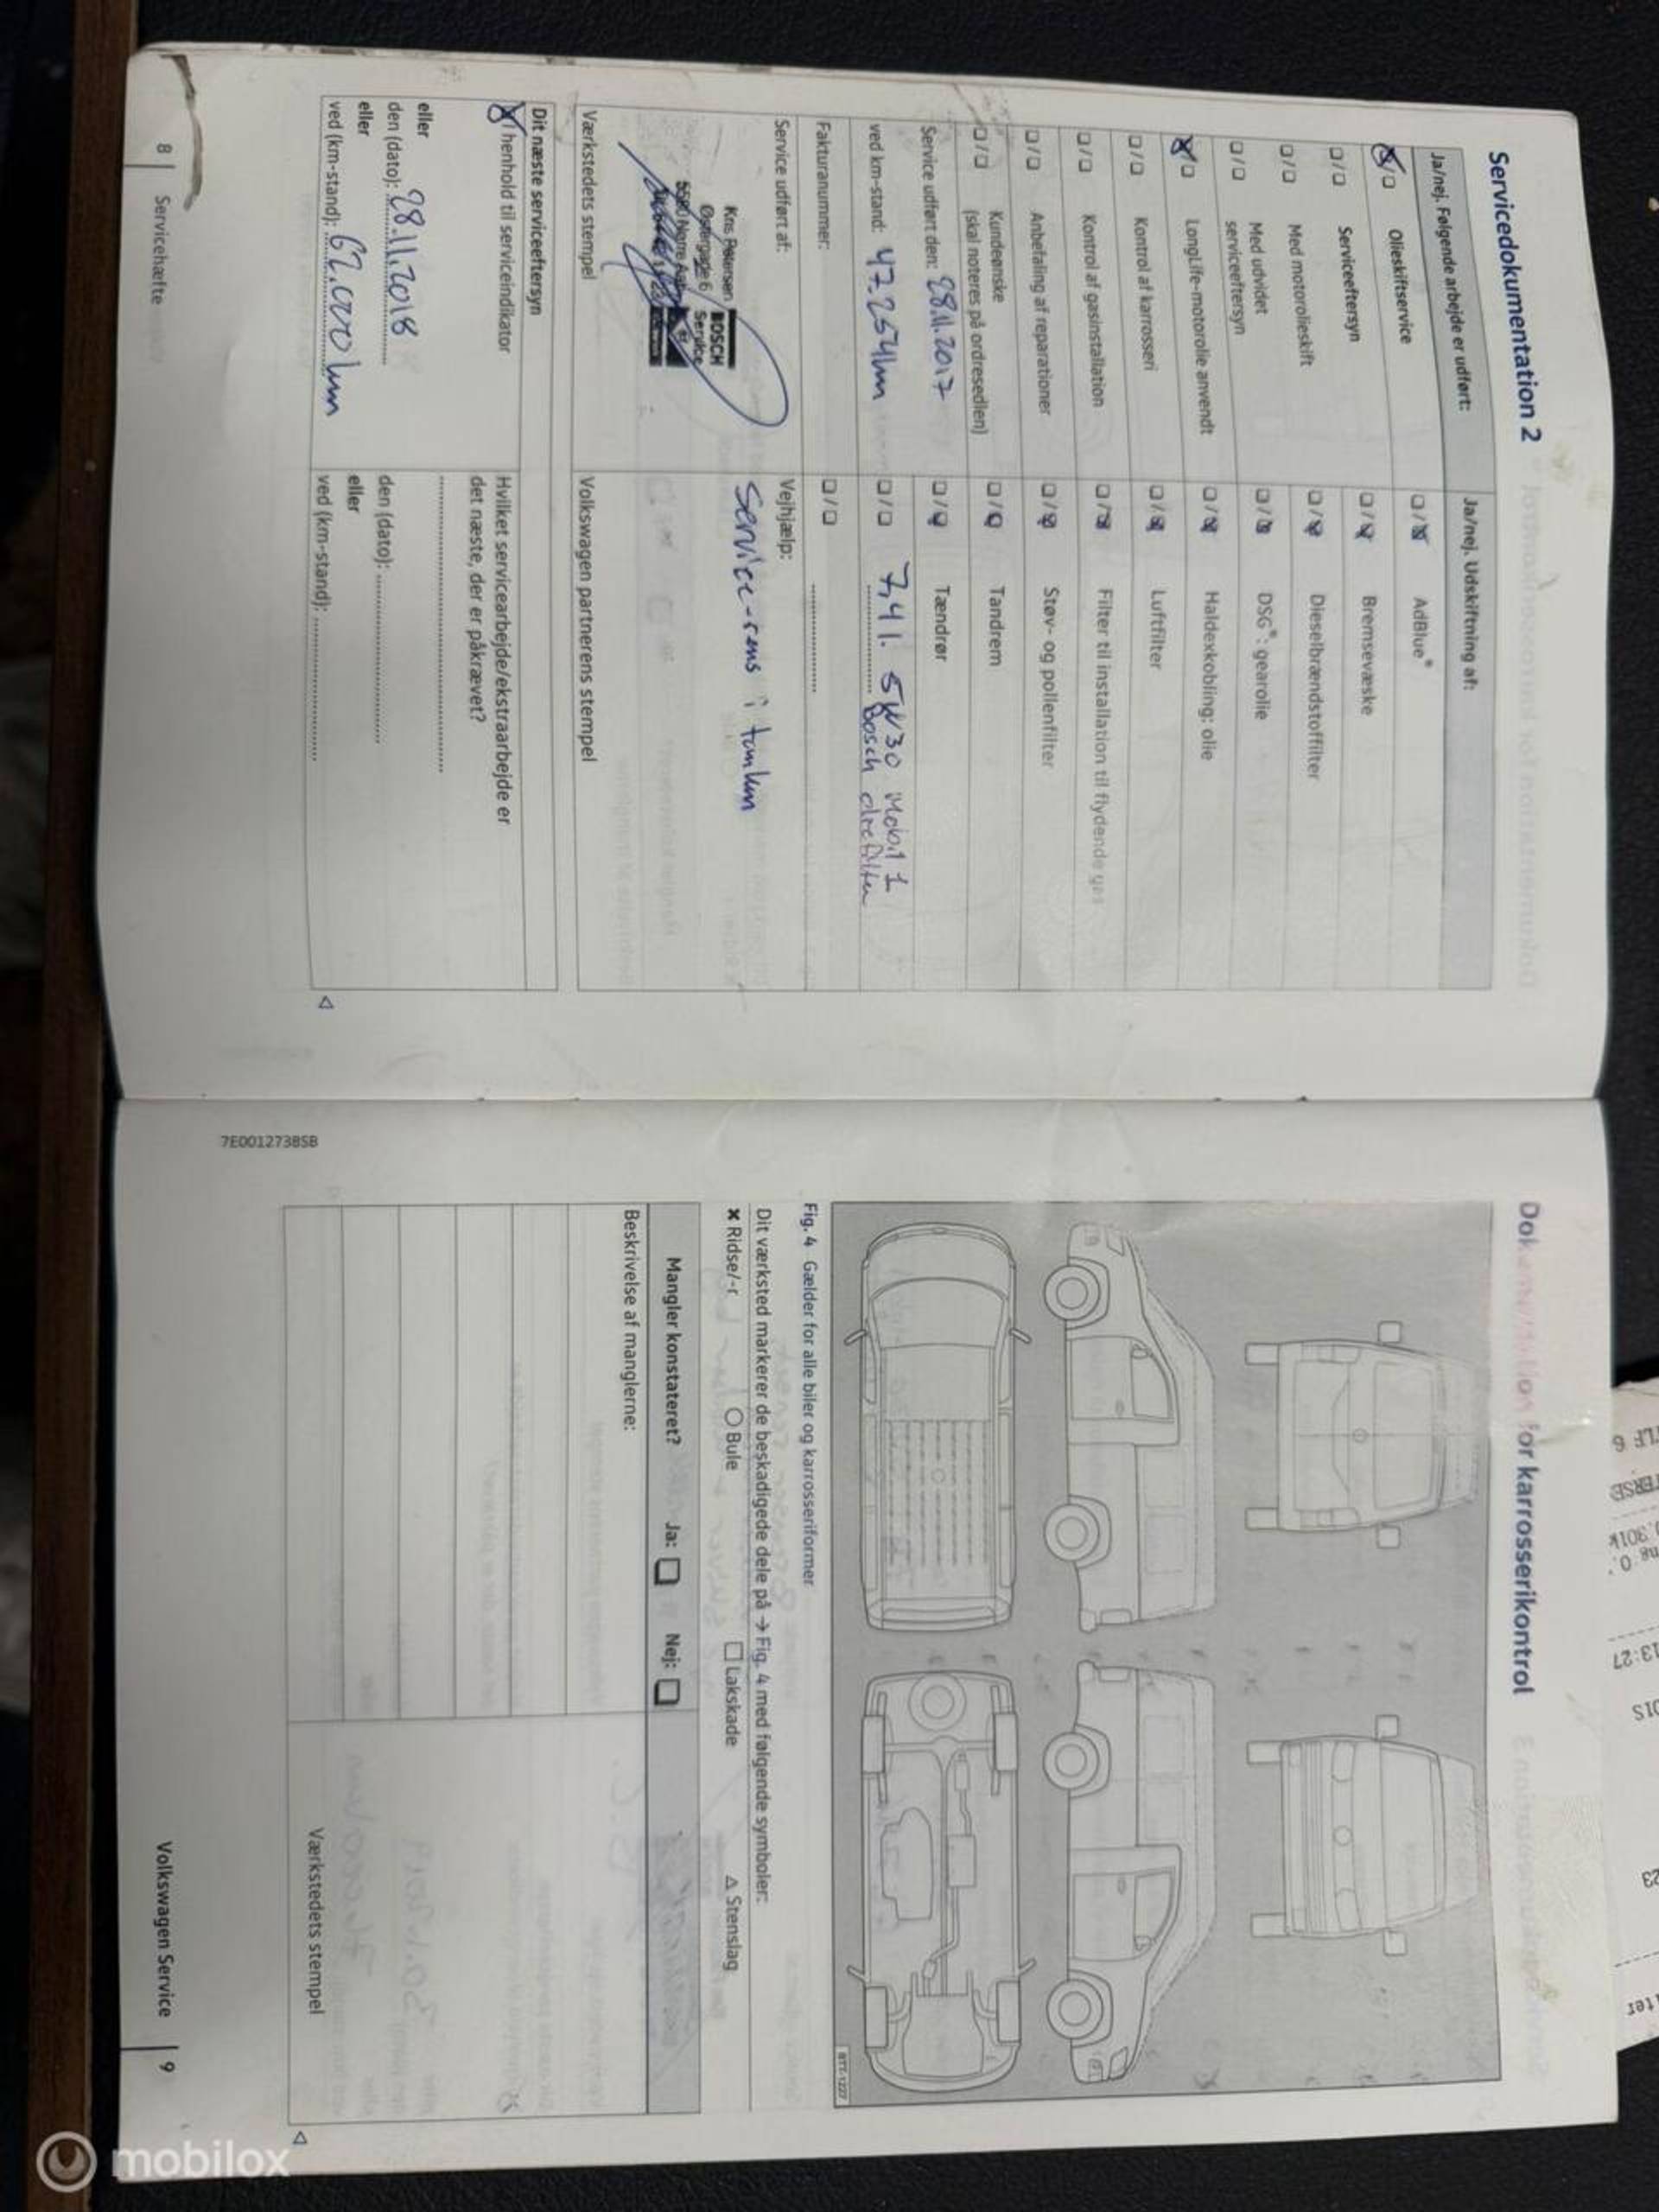 Servicedokumentation 2
Ja/nej. Følgende arbejde er udført:
Ja/nej. Udskiftning af:
Olieskiftservice
AdBlue®
Serviceeftersyn
Bremsevæske
Med motorolieskift
Dieselbrændstoffilter
Med udvidet
serviceeftersyn
DSG®: gearolie
LongLife-motorolie anvendt
Haldexkobling: olie
Kontrol af karrosseri
Luftfilter
Kontrol af gasinstallation
Filter til installation til flydende gas
Anbefaling af reparationer
Støv- og pollenfilter
Kundeønske
(skal noteres på ordresedlen)
Tandrem
Service udført den: 28.11.2017
Tændrør
ved km-stand: 47.254 km
7,4 l. 5W30 Mobil 1
Bosch oliefilter
Fakturanummer:
Service udført af:
Vejhjælp:
Service-rens i tanken
Kris Pettersen
Østergade 6
BOSCH
Service
Værkstedets stempel
Volkswagen partnerens stempel
Dit næste serviceeftersyn
I henhold til serviceindikator
Hvilket servicearbejde/ekstraarbejde er
det næste, der er påkrævet?
eller
den (dato): 28.11.2018
den (dato):
eller
eller
ved (km-stand): 62.000 km
ved (km-stand):
8 | Servicehæfte
7E0012738SB
Dokumentation for karrosserikontrol
BTT-1227
Fig. 4 Gælder for alle biler og karrosseriformer
Dit værksted markerer de beskadigede dele på → Fig. 4 med følgende symboler:
✖ Ridse/-r ○ Bule □ Lakskade △ Stenslag
Mangler konstateret? Ja: □ Nej: □
Beskrivelse af manglerne:
Værkstedets stempel
Volkswagen Service | 9
13:27
23
mobilox